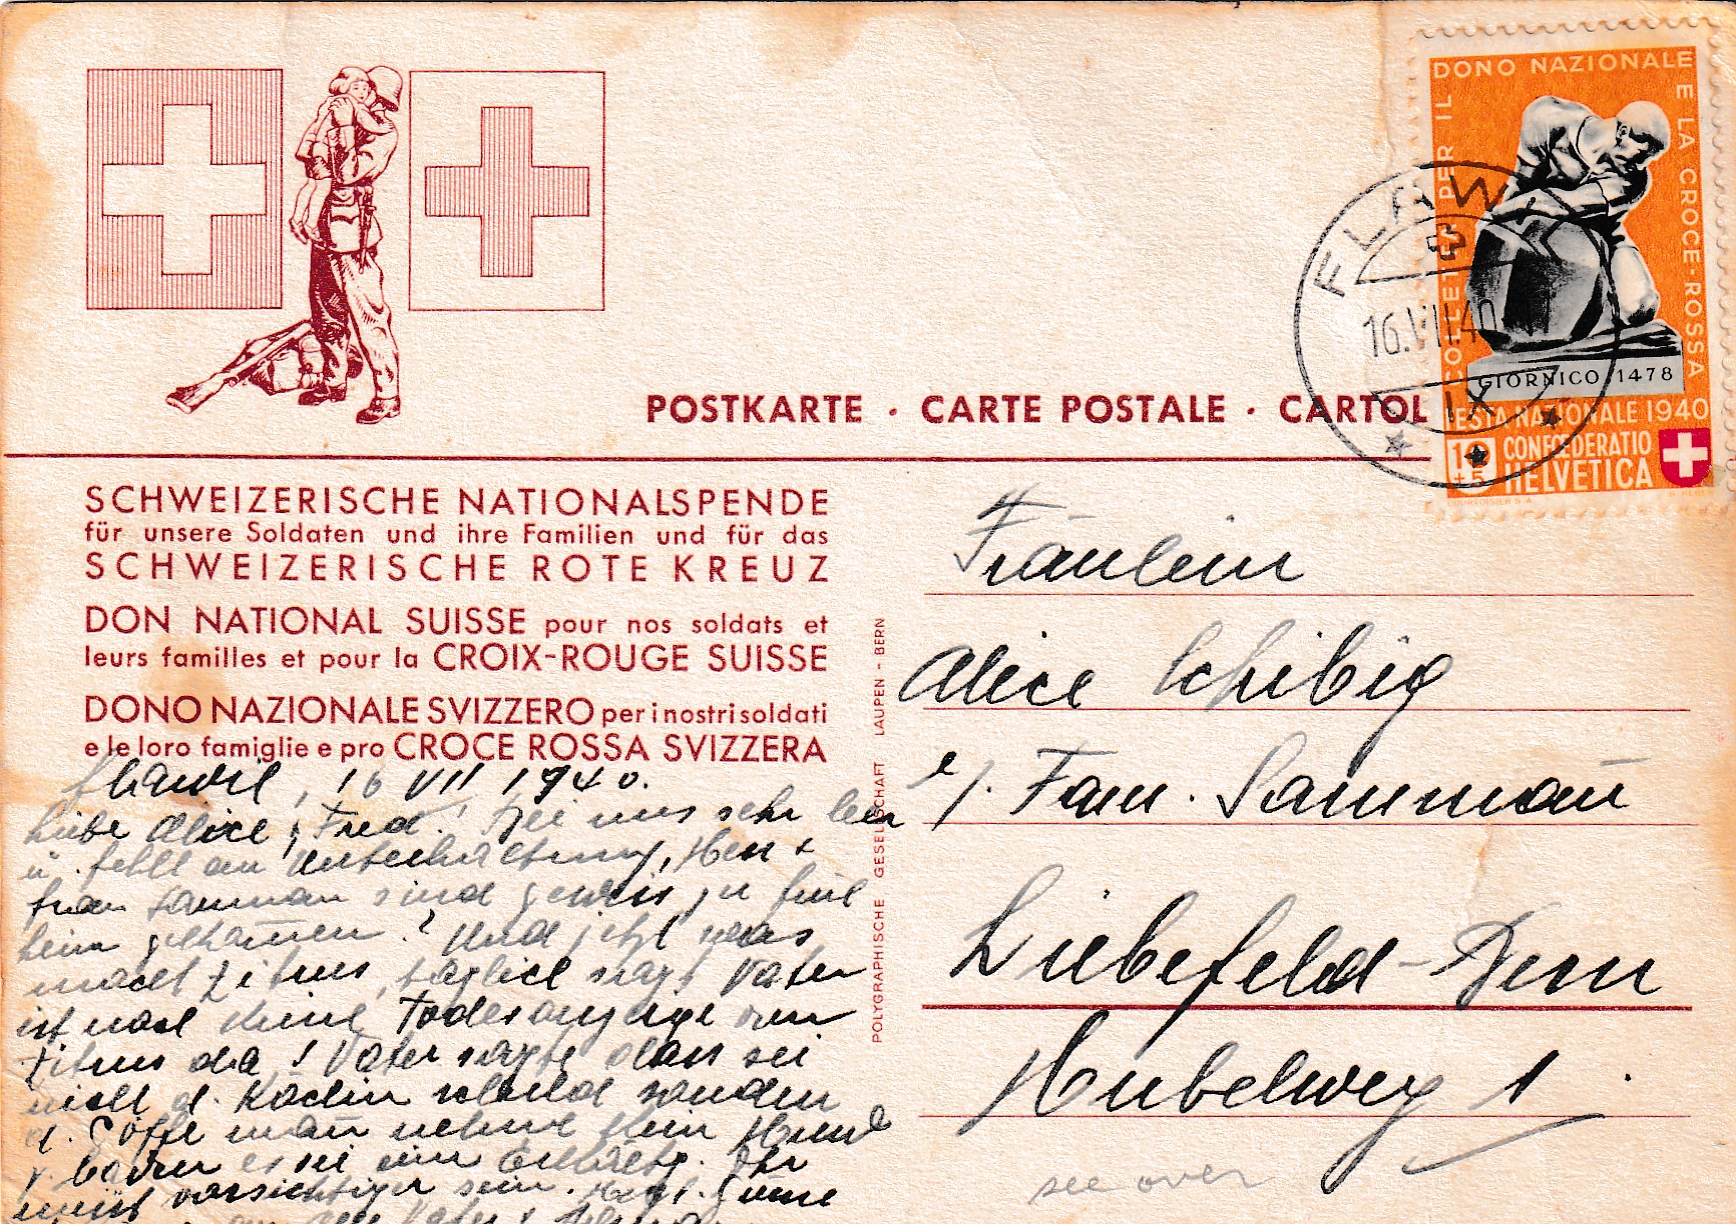 DONO NAZIONALE
COLLETTA PER IL
E LA CROCE-ROSSA
GIORNICO 1478
FESTA NAZIONALE 1940
10
+5
CONFŒDERATIO
HELVETICA
FLAWIL
16.VII.40
IX
POSTKARTE · CARTE POSTALE · CARTOL
SCHWEIZERISCHE NATIONALSPENDE
für unsere Soldaten und ihre Familien und für das
SCHWEIZERISCHE ROTE KREUZ
DON NATIONAL SUISSE pour nos soldats et
leurs familles et pour la CROIX-ROUGE SUISSE
DONO NAZIONALE SVIZZERO per i nostri soldati
e le loro famiglie e pro CROCE ROSSA SVIZZERA
POLYGRAPHISCHE GESELLSCHAFT LAUPEN - BERN
Flawil, 16 VII 1940.
Liebe Alice, Fred! Bei uns sehr leer
u. fehlt an Unterhaltung, Herr +
Frau Samman sind gewiss zu
heim ? Und jetzt was
macht Zitrus, täglich sagt Vater
ist noch keine Todesanzeige von
Zitrus da! Vater sagte dass sei
nicht d. Köchin schuld sondern
d. man nehme kein Hund
v. es sei ein
müsst vorsichtiger sein.
Fräulein
Alice Schibig
c/. Fam. Sammañ
Liebefeld-Bern
Hubelweg 1.
see over